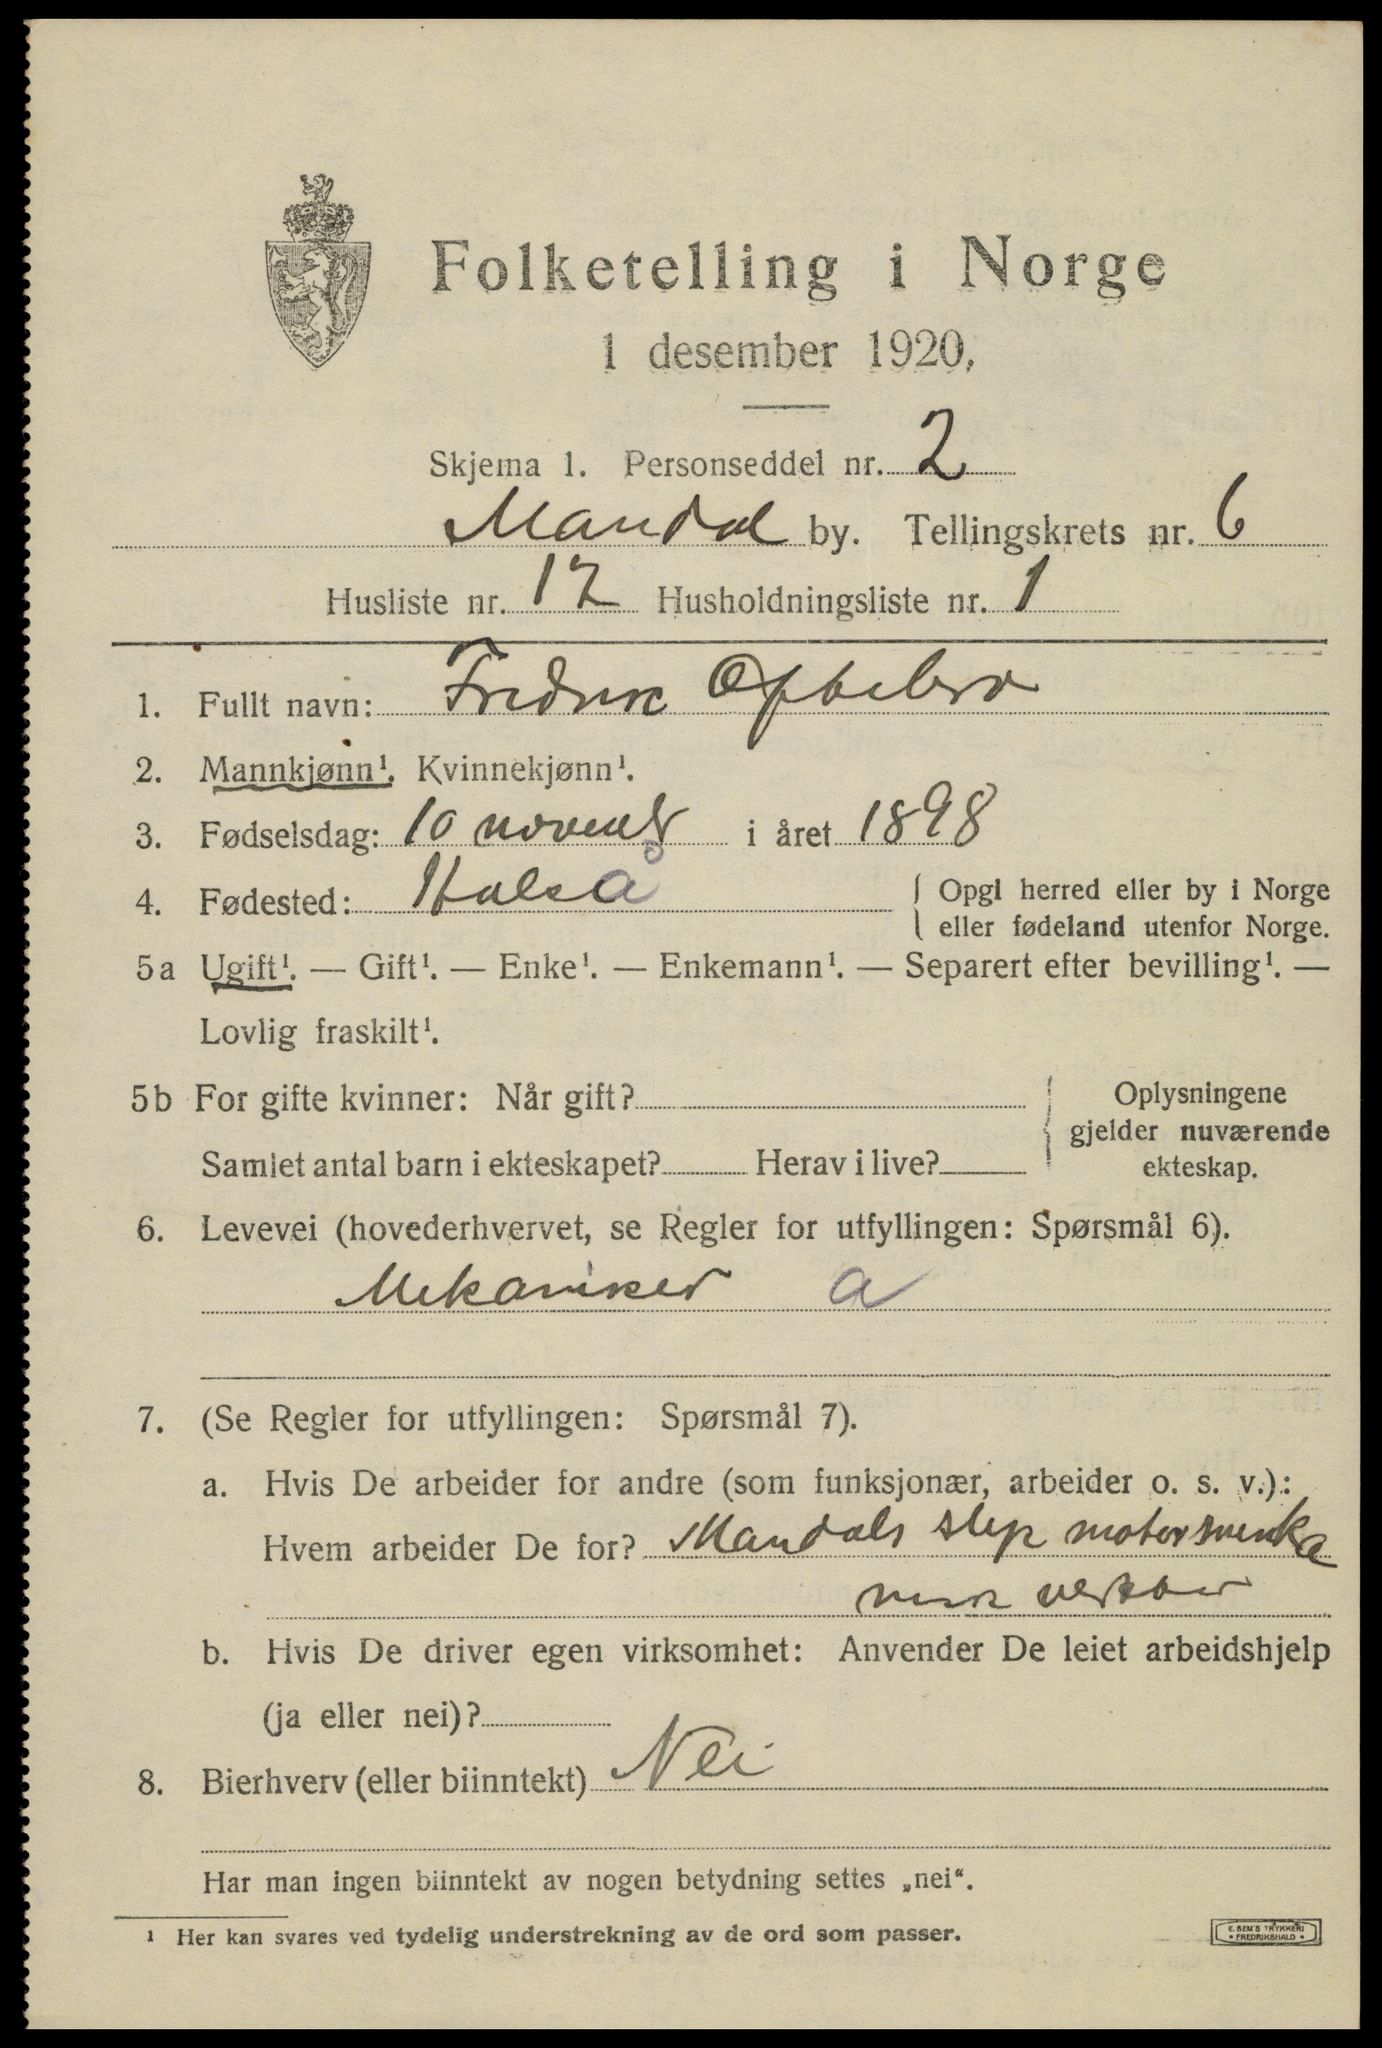 Folketelling i Norge
1 desember 1920.
Skjema 1. Personseddel nr. 2
Mandal by. Tellingskrets nr. 6
Husliste nr. 12 Husholdningsliste nr. 1
1. Fullt navn: Fredrik
2. Mannkjønn¹. Kvinnekjønn¹.
3. Fødselsdag: 10 novembr i året 1898
4. Fødested: Halså { Opgi herred eller by i Norge
eller fødeland utenfor Norge.
5a Ugift¹. — Gift¹. — Enke¹. — Enkemann¹. — Separert efter bevilling¹. —
Lovlig fraskilt¹.
5b For gifte kvinner: Når gift? { Oplysningene
gjelder nuværende
Samlet antal barn i ekteskapet? Herav i live? ekteskap.
6. Levevei (hovederhvervet, se Regler for utfyllingen: Spørsmål 6).
Mekaniker a
7. (Se Regler for utfyllingen: Spørsmål 7).
a. Hvis De arbeider for andre (som funksjonær, arbeider o. s. v.):
Hvem arbeider De for? Mandals slip
b. Hvis De driver egen virksomhet: Anvender De leiet arbeidshjelp
(ja eller nei)?
8. Bierhverv (eller biinntekt) Nei
Har man ingen biinntekt av nogen betydning settes „nei“.
¹ Her kan svares ved tydelig understrekning av de ord som passer.
E. SEM'S TRYKKERI
• FREDRIKSHALD •